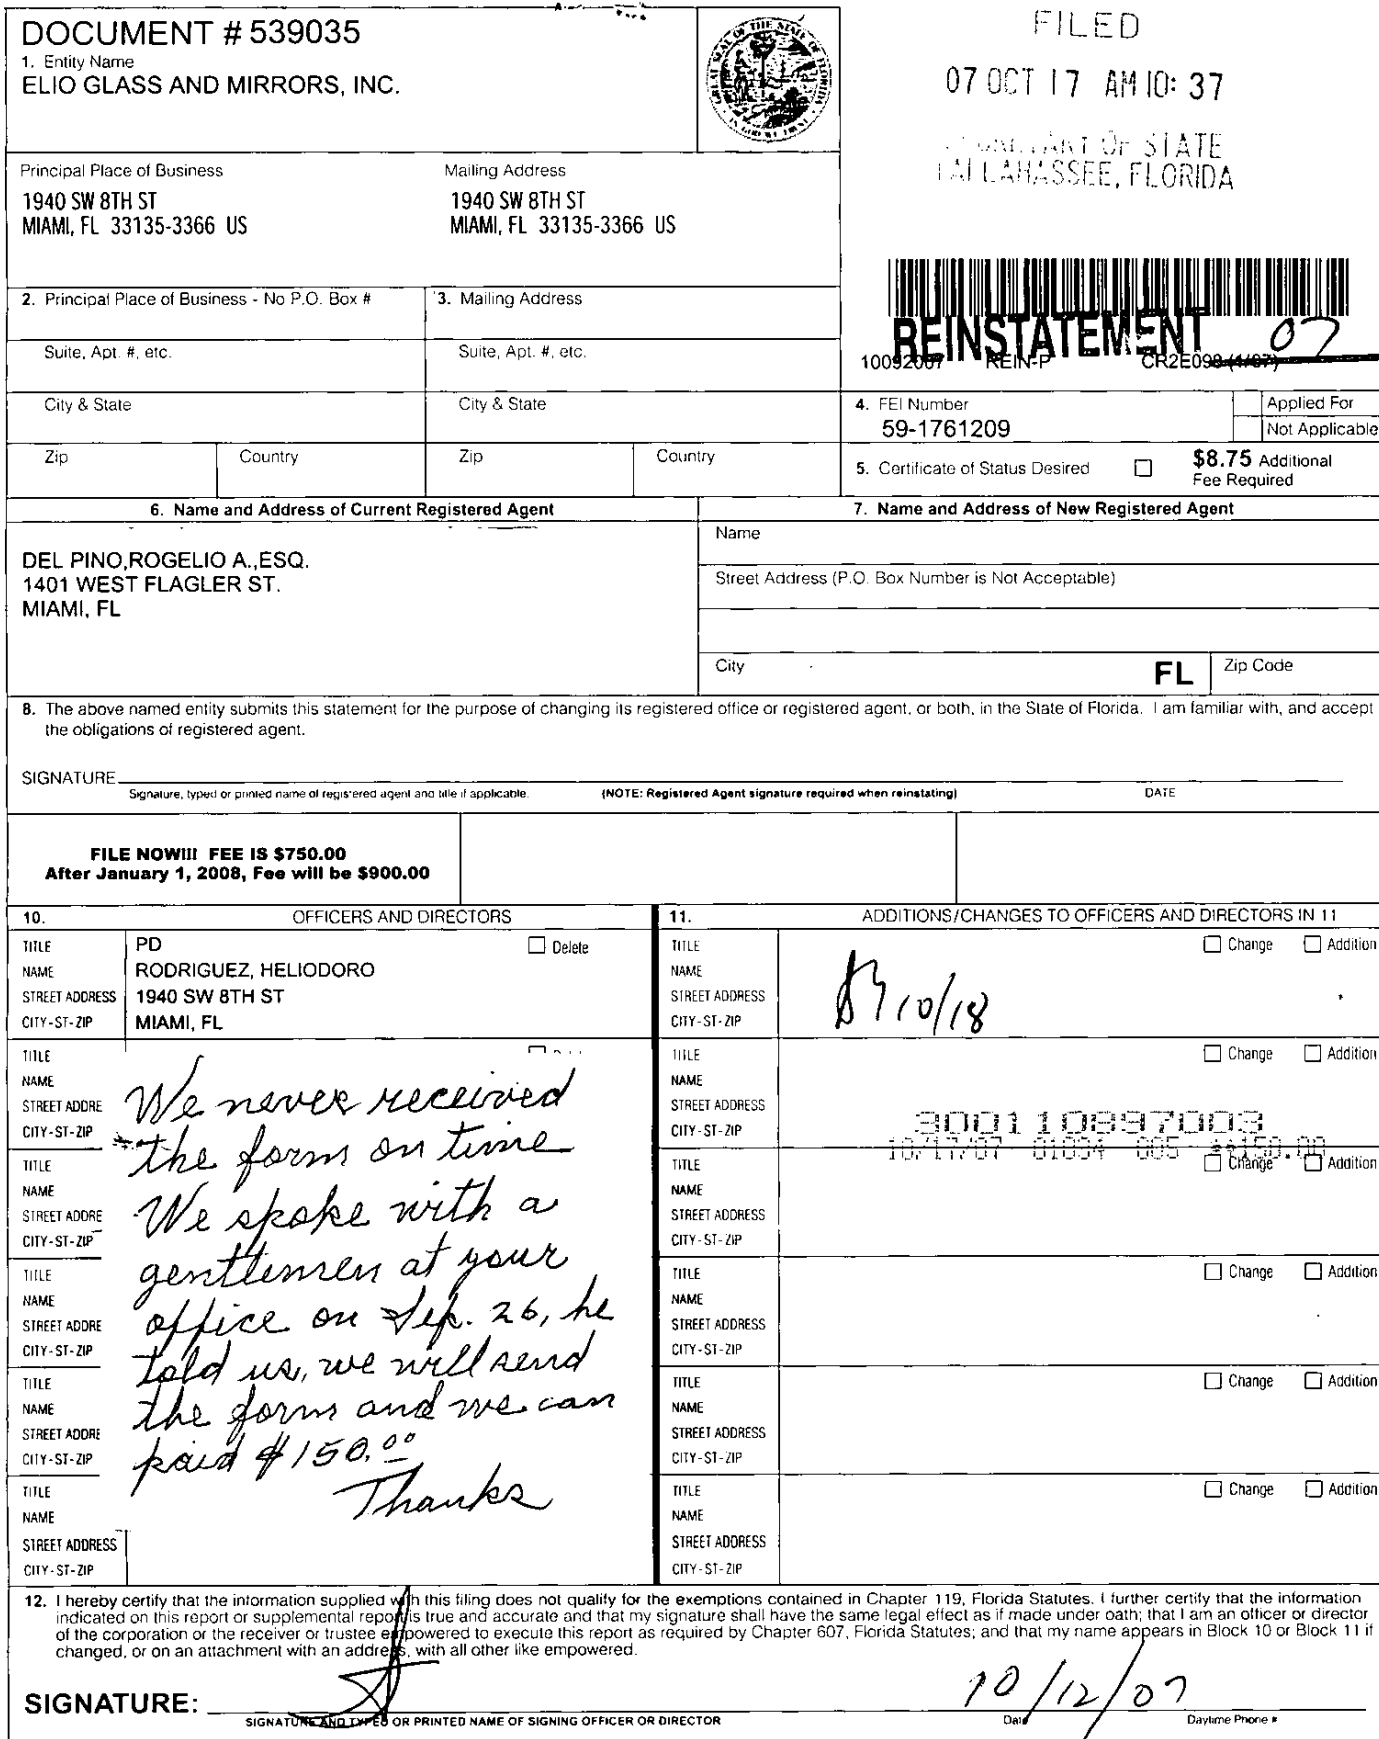 DOCUMENT # 539035
1. Entity Name
ELIO GLASS AND MIRRORS, INC.
FILED
07 OCT 17 AM 10: 37
OF STATE
TALLAHASSEE, FLORIDA
Principal Place of Business
Mailing Address
1940 SW 8TH ST
MIAMI, FL 33135-3366 US
1940 SW 8TH ST
MIAMI, FL 33135-3366 US
2. Principal Place of Business - No P.O. Box #
3. Mailing Address
Suite, Apt. #, etc.
Suite, Apt. #, etc.
REINSTATEMENT 07
10092007 REIN-P CR2E098 (1/07)
City & State
City & State
Zip
Country
Zip
Country
4. FEI Number
59-1761209
Applied For
Not Applicable
5. Certificate of Status Desired
$8.75 Additional
Fee Required
6. Name and Address of Current Registered Agent
7. Name and Address of New Registered Agent
DEL PINO,ROGELIO A.,ESQ.
1401 WEST FLAGLER ST.
MIAMI, FL
Name
Street Address (P.O. Box Number is Not Acceptable)
City
FL
Zip Code
8. The above named entity submits this statement for the purpose of changing its registered office or registered agent, or both, in the State of Florida. I am familiar with, and accept
the obligations of registered agent.
SIGNATURE
Signature, typed or printed name of registered agent and title if applicable.
(NOTE: Registered Agent signature required when reinstating)
DATE
FILE NOW!!! FEE IS $750.00
After January 1, 2008, Fee will be $900.00
10. OFFICERS AND DIRECTORS
11. ADDITIONS/CHANGES TO OFFICERS AND DIRECTORS IN 11
TITLE PD Delete
NAME RODRIGUEZ, HELIODORO
STREET ADDRESS 1940 SW 8TH ST
CITY-ST-ZIP MIAMI, FL
TITLE Change Addition
NAME
STREET ADDRESS
CITY-ST-ZIP
10/18
TITLE
NAME
STREET ADDRE
CITY-ST-ZIP
TITLE
NAME
STREET ADDRE
CITY-ST-ZIP
TITLE
NAME
STREET ADDRE
CITY-ST-ZIP
TITLE
NAME
STREET ADDRE
CITY-ST-ZIP
TITLE
NAME
STREET ADDRESS
CITY-ST-ZIP
We never received
the form on time
We spoke with a
gentlemen at your
office on Sep. 26, he
told us, we will send
the form and we can
paid $150.00
Thanks
TITLE Change Addition
NAME
STREET ADDRESS
CITY-ST-ZIP
300110897003
10/17/07 01034 005 **150.00
TITLE Change Addition
NAME
STREET ADDRESS
CITY-ST-ZIP
TITLE Change Addition
NAME
STREET ADDRESS
CITY-ST-ZIP
TITLE Change Addition
NAME
STREET ADDRESS
CITY-ST-ZIP
TITLE Change Addition
NAME
STREET ADDRESS
CITY-ST-ZIP
12. I hereby certify that the information supplied with this filing does not qualify for the exemptions contained in Chapter 119, Florida Statutes. I further certify that the information
indicated on this report or supplemental report is true and accurate and that my signature shall have the same legal effect as if made under oath; that I am an officer or director
of the corporation or the receiver or trustee empowered to execute this report as required by Chapter 607, Florida Statutes; and that my name appears in Block 10 or Block 11 if
changed, or on an attachment with an address, with all other like empowered.
SIGNATURE:
10/12/07
SIGNATURE AND TYPED OR PRINTED NAME OF SIGNING OFFICER OR DIRECTOR
Date
Daytime Phone #